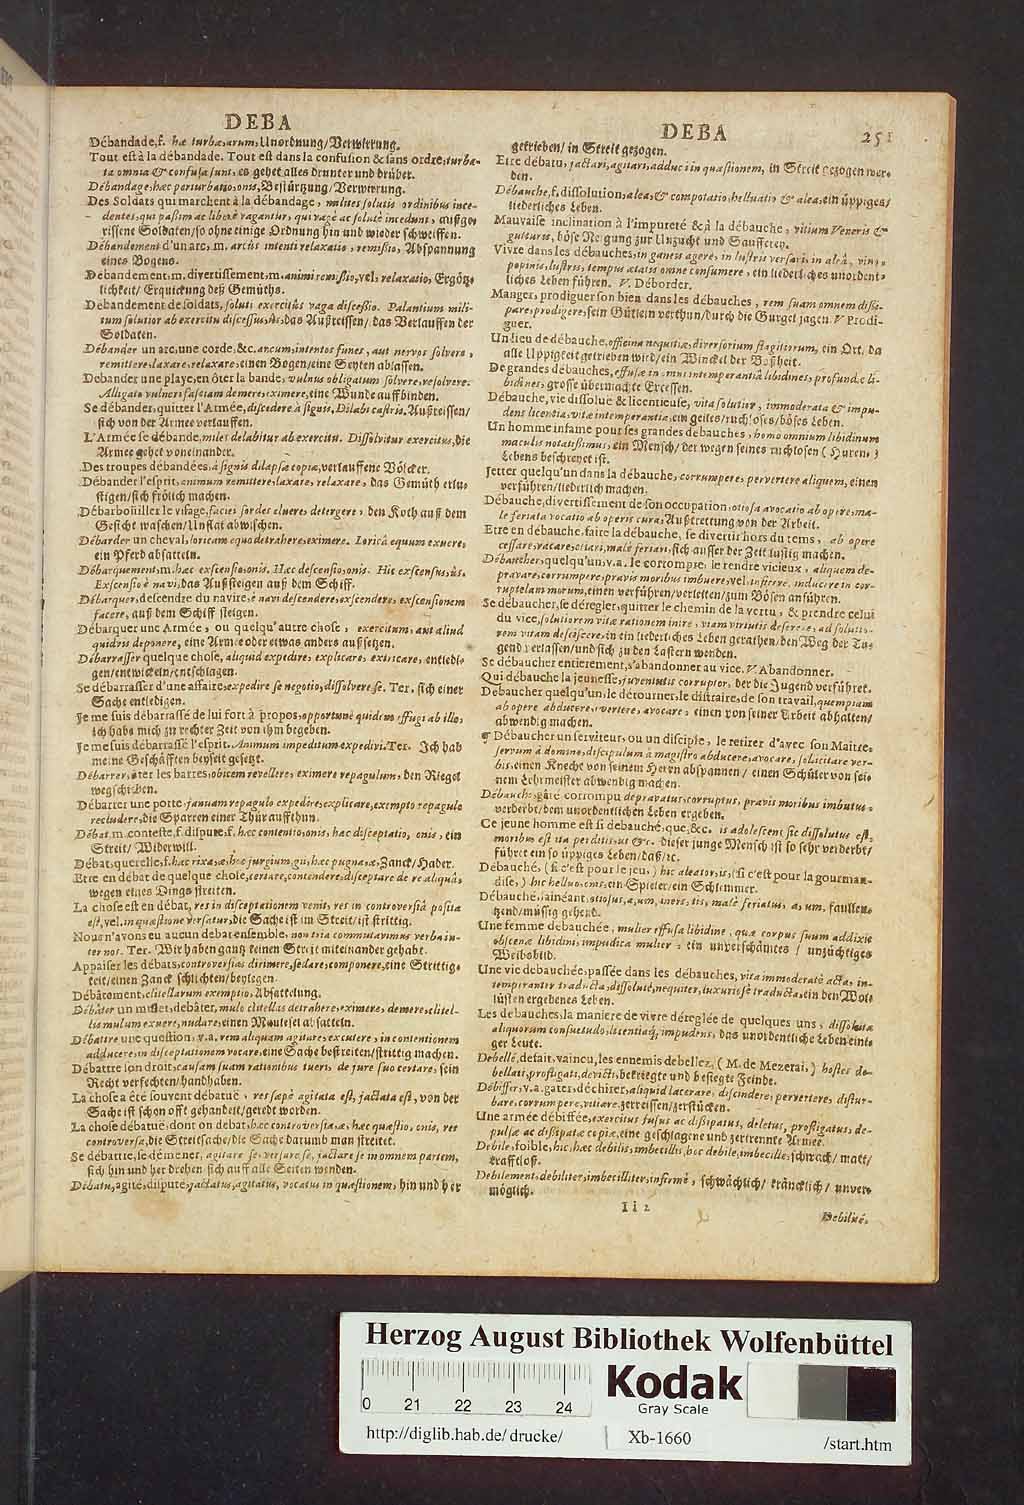 DEBA
Débandade, f. hæ turbæ, arum, Unordnung/Verwirrung.
Tout est à la débandade. Tout est dans la confusion & sans ordre, turba-
ta omnia & confusa sunt, es gehet alles drunter und drüber.
Débandage, hæc parturbatio, onis, Bestürtzung/Verwirrung.
Des Soldats qui marchent à la débandage, milites solutis ordinibus ince-
dentes, qui passim ac liberè vagantur, qui vagè ac solutè incedunt, außge-
rissene Soldaten/so ohne einige Ordnung hin und wieder schweiffen.
Débandement d'un arc, m. arcus intenti relaxatio, remissio, Abspannung
eines Bogens.
Débandement, m. divertissement, m. animi remissio, vel, relaxatio, Ergötz-
lichkeit/Erquickung deß Gemüths.
Débandement de soldats, soluti exercitûs vaga discessio. Palantium mili-
tum solutior ab exercitu discessus, ûs, das Außreissen/das Verlauffen der
Soldaten.
Débander un arc, une corde, &c. arcum, intentos funes, aut nervos solvere,
remittere, laxare, relaxare, einen Bogen/eine Seyten ablassen.
Debander une playe, en ôter la bande, vulnus obligatum solvere, resolvere.
Alligato vulneri fasciam demere, eximere, eine Wunde auffbinden.
Se débander, quitter l'Armée, discedere à signis, Dilabi castris. Außreissen/
sich von der Armee verlauffen.
L'Armée se débande, miles delabitur ab exercitu. Dissolvitur exercitus, die
Armee gehet voneinander.
Des troupes débandées, à signis dilapsæ copiæ, verlauffene Völcker.
Débander l'esprit, animum remittere, laxare, relaxare, das Gemüth erlu-
stigen/sich frölich machen.
Débarboüiller le visage, faciei sordes eluere, detergere, den Koth auß dem
Gesicht waschen/Unflat abwischen.
Débarder un cheval, loricam equo detrahere, eximere. Loricâ equum exuere,
ein Pferd absatteln.
Débarquement, m. hæc exscensio, onis. Hæc descensio, onis. Hic exscensus, ûs.
Exscensio è navi, das Außsteigen auß dem Schiff.
Débarquer, descendre du navire, è navi descendere, exscendere, exscensionem
facere, auß dem Schiff steigen.
Débarquer une Armée, ou quelqu'autre chose, exercitum, aut aliud
quidvis deponere, eine Armee oder etwas anders außsetzen.
Débarrasser quelque chose, aliquid expedire, explicare, extricare, entledi-
gen/entwickeln/entschlagen.
Se débarrasser d'une affaire, expedire se negotio, dissolvere se. Ter. sich einer
Sache entledigen.
Je me suis débarrassé de lui fort à propos, opportunè quidem effugi ab illo,
ich habe mich zu rechter Zeit von ihm begeben.
Je me suis débarrassé l'esprit. Animum impeditum expedivi. Ter. Ich hab
meine Geschäfften beyseit gesetzt.
Débarrer, ôter les barres, obicem revellere, eximere repagulum, den Riegel
wegschieben.
Débarrer une porte, januam repagulo expedire, explicare, exempto repagulo
recludere, die Sparren einer Thür auffthun.
Débat, m. conteste, f. dispute, f. hæc contentio, onis, hæc disceptatio, onis, ein
Streit/Widerwill.
Débat, querelle, f. hæc rixa, æ, hoc jurgium, gii, hæc pugna, æ, Zanck/Hader.
Etre en débat de quelque chose, certare, contendere, disceptare de re aliquâ,
wegen eines Dings streiten.
La chose est en débat, res in disceptationem venit, res in controversiâ posita
est, vel, in quæstione versatur, die Sache ist im Streit/ist strittig.
Nous n'avons eu aucun debat ensemble, non tria commutavimus verba in-
ter nos. Ter. Wir haben gantz keinen Streit miteinander gehabt.
Appaiser les débats, controversias dirimere, sedare, componere, eine Strittig-
keit/einen Zanck schlichten/beylegen.
Débâtement, clitellarum exemptio, Absattelung.
Débâter un mulet, debâter, mulo clitellas detrahere, eximere, demere, clitel-
lis mulum exuere, nudare, einen Maulesel absatteln.
Débattre une question, v. a. rem aliquam agitare, excutere, in contentionem
adducere, in disceptationem vocare, eine Sache bestreiten/strittig machen.
Débattre son droit, causam suam rationibus tueri, de jure suo certare, sein
Recht verfechten/handhaben.
La chose a été souvent débatuë, res sæpè agitata est, jactata est, von der
Sache ist schon offt gehandelt/geredt worden.
La chose débatuë, dont on debat, hæc controversia, æ, hæc quæstio, onis, res
controversa, die Streitsache/die Sache darumb man streitet.
Se débattre, se démener, agitare se, versare se, jactare se in omnem partem,
sich hin und her drehen sich auff alle Seiten wenden.
Débatu, agité, disputé, jactatus, agitatus, vocatus in quæstionem, hin und her
DEBA 251
getrieben/in Streit gezogen.
Etre débatu, jactari, agitari, adduci in quæstionem, in Streit gezogen wer-
den.
Débauche, f. dissolution, alea, & compotatio, helluatio & alea, ein üppiges/
liederliches Leben.
Mauvaise inclination à l'impureté & à la débauche, vitium Veneris &
gulturis, böse Neigung zur Unzucht und Saufferey.
Vivre dans les débauches, in ganeis agere, in lustris versari, in aleâ, vino,
popinis, lustris, tempus ætatis omne consumere, ein liederliches unordent-
liches Leben führen. V. Déborder.
Manger, prodiguer son bien dans les débauches, rem suam omnem dissi-
pare, prodigere, sein Gütlein verthun/durch die Gurgel jagen. V Prodi-
guer.
Un lieu de débauche, officina nequitiæ, diversorium flagitiorum, ein Ort, da
alle Uppigkeit getrieben wird/ein Winckel der Boßheit.
De grandes débauches, effusæ in omni intemperantiâ libidines, profundæ li-
bidines, grosse übermachte Excessen.
Débauche, vie dissoluë & licentieuse, vita solutior, immoderata & impu-
dens licentia, vitæ intemperantia, ein geiles/ruchloses/böses Leben.
Un homme infame pour ses grandes debauches, homo omnium libidinum
maculis notatissimus, ein Mensch/der wegen seines ruchlosen (Huren-)
Lebens beschreyet ist.
Jetter quelqu'un dans la débauche, corrumpere, pervertere aliquem, einen
verführen/liederlich machen.
Débauche, divertissement de son occupation, otiosa avocatio ab opere, ma-
lè feriata vocatio ab operis cura, Außtrettung von der Arbeit.
Etre en débauche, faire la débauche, se divertir hors du tems, ab opere
cessare, vacare, otiari, malè feriari, sich ausser der Zeit lustig machen.
Débaucher, quelqu'un, v. a. le corrompre, le rendre vicieux, aliquem de-
pravare, corrumpere, pravis moribus imbuere, vel inficere, inducere in cor-
ruptelam morum, einen verführen/verleiten/zum Bösen anführen.
Se débaucher, se dérégler, quitter le chemin de la vertu, & prendre celui
du vice, solutiorem vitæ rationem inire, viam virtutis deserere, ad solutio-
rem vitam desciscere, in ein liederliches Leben gerathen/den Weg der Tu-
gend verlassen/und sich zu den Lastern wenden.
Se débaucher entierement, s'abandonner au vice. V. Abandonner.
Qui débauche la jeunesse, juventutis corruptor, der die Jugend verführet.
Debaucher quelqu'un, le détourner, le distraire, de son travail, quempiam
ab opere abducere, avertere, avocare, einen von seiner Arbeit abhalten/
abwendig machen.
¶ Débaucher un serviteur, ou un disciple, le retirer d'avec son Maitre,
servum à domino, discipulum à magistro abducere, avocare, solicitare ver-
bis, einen Knecht von seinem Herrn abspannen/einen Schüler von sei-
nem Lehrmeister abwendig machen.
Débauché, gâté corrompu depravatus, corruptus, pravis moribus imbutus,
verderbt/dem unordentlichen Leben ergeben.
Ce jeune homme est si debauché, que, &c. is adolescens sic dissolutus est,
moribus est ita perditis, ut &c. dieser junge Mensch ist so sehr verderbt/
führet ein so üppiges Leben/daß/ꝛc.
Débauché, (si c'est pour le jeu,) hic aleator, is, (si c'est pour la gourman-
dise,) hic helluo, onis, ein Spieler/ein Schlemmer.
Débauché, fainéant, otiosus, a, um, iners, tis, malè feriatus, a, um, faullen-
tzend/müssig gehend.
Une femme debauchée, mulier effusa libidine, quæ corpus suum addixit
obscenæ libidini, impudica mulier, ein unverschämtes/unzüchtiges
Weibsbild.
Une vie debauchée, passée dans les débauches, vita immoderatè acta, in-
temperanter traducta, dissolutè, nequiter, luxuriosè traducta, ein den Wol-
lüsten ergebenes Leben.
Les debauches, la maniere de vivre déreglée de quelques uns, dissoluta
aliquorum consuetudo, licentiaq́, impudens, das unordentliche Leben eini-
ger Leute.
Debellé, defait, vaincu, les ennemis debellez, (M. de Mezerai,) hostes de-
bellati, profligati, devicti, bekriegte und besiegte Feinde.
Débiffer, v. a. gater, déchirer, aliquid lacerare, discindere, pervertere, distur-
bare, corrumpere, vitiare, zerreissen/zerstücken.
Une armée débiffée, exercitus fusus ac dissipatus, deletus, profligatus, de-
pulsæ ac dissipatæ copiæ, eine geschlagene und zertrennte Armee.
Debile, foible, hic, hæc debilis, imbecillis, hoc debile, imbecille, schwach/matt/
krafftloß.
Debilement, debiliter, imbecilliter, infirmè, schwächlich/kräncklich/unver-
möglich.
Ii 2
Debilité,
Herzog August Bibliothek Wolfenbüttel
0 21 22 23 24
Kodak
Gray Scale
http://diglib.hab.de/ drucke/
Xb-1660
/start.htm